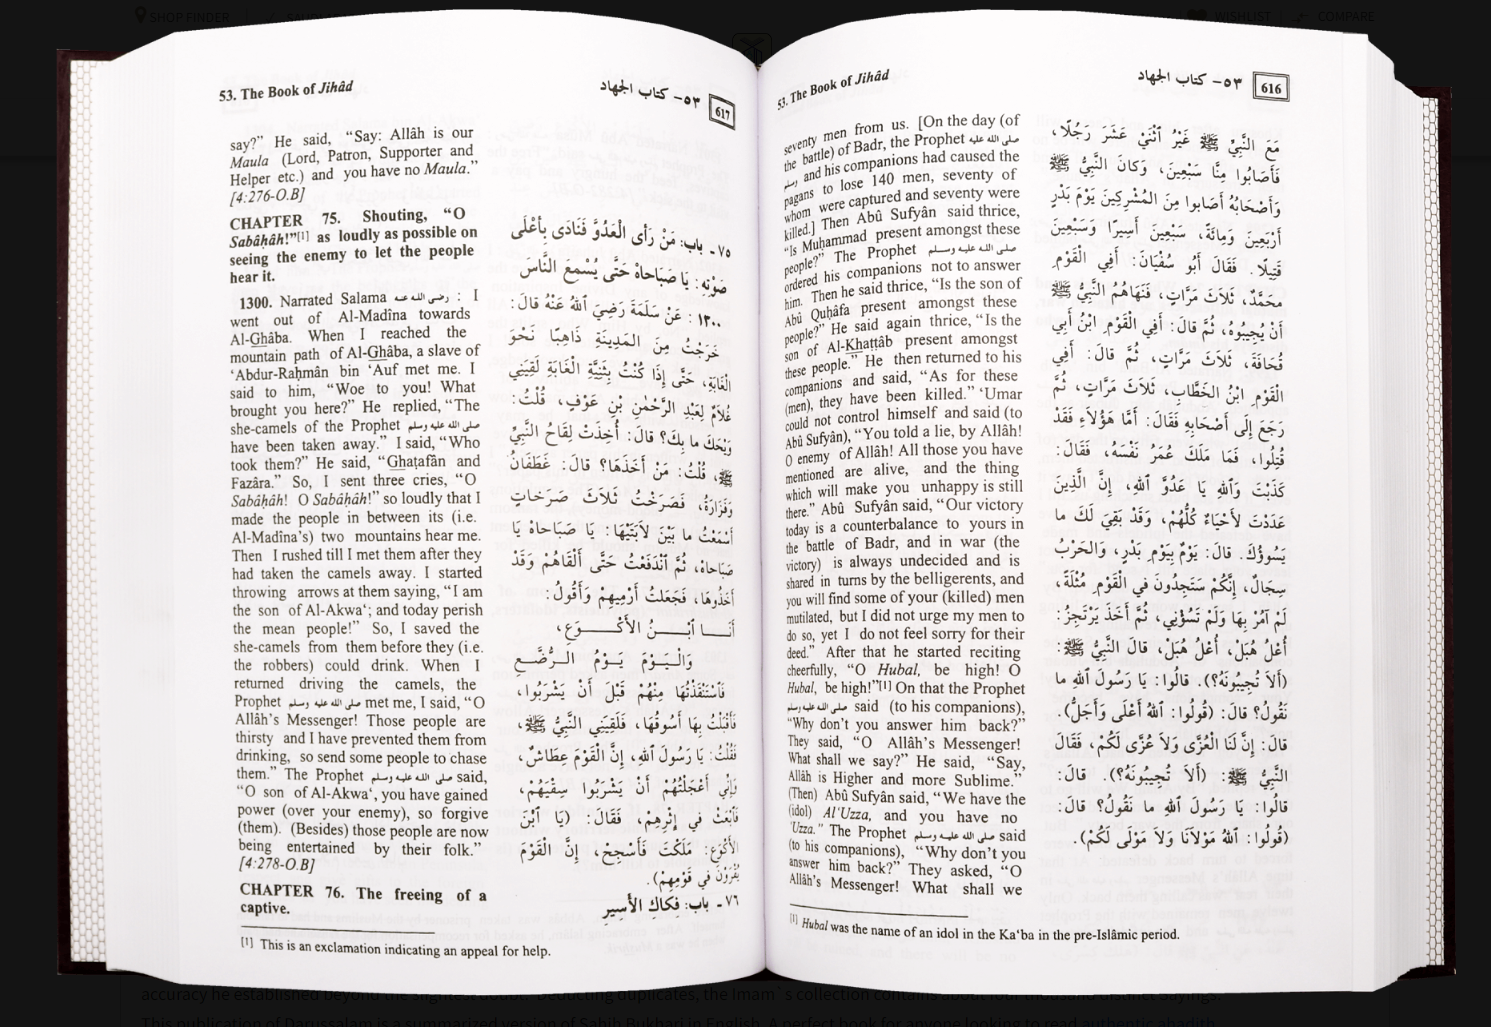 SHOP FINDER
WISHLIST
COMPARE
53. The Book of Jihâd
٥٣- كتاب الجهاد
616
seventy men from us. [On the day (of
the battle) of Badr, the Prophet صلى الله عليه
وسلم and his companions had caused the
pagans to lose 140 men, seventy of
whom were captured and seventy were
killed.] Then Abû Sufyân said thrice,
“Is Muḥammad present amongst these
people?” The Prophet صلى الله عليه وسلم
ordered his companions not to answer
him. Then he said thrice, “Is the son of
Abû Quḥâfa present amongst these
people?” He said again thrice, “Is the
son of Al-Khaṭṭâb present amongst
these people.” He then returned to his
companions and said, “As for these
(men), they have been killed.” ‘Umar
could not control himself and said (to
Abû Sufyân), “You told a lie, by Allâh!
O enemy of Allâh! All those you have
mentioned are alive, and the thing
which will make you unhappy is still
there.” Abû Sufyân said, “Our victory
today is a counterbalance to yours in
the battle of Badr, and in war (the
victory) is always undecided and is
shared in turns by the belligerents, and
you will find some of your (killed) men
mutilated, but I did not urge my men to
do so, yet I do not feel sorry for their
deed.” After that he started reciting
cheerfully, “O Hubal, be high! O
Hubal, be high!”[1] On that the Prophet
صلى الله عليه وسلم said (to his companions),
“Why don’t you answer him back?”
They said, “O Allâh’s Messenger!
What shall we say?” He said, “Say,
Allâh is Higher and more Sublime.”
(Then) Abû Sufyân said, “We have the
(idol) Al‘Uzza, and you have no
‘Uzza.” The Prophet صلى الله عليه وسلم said
(to his companions), “Why don’t you
answer him back?” They asked, “O
Allâh’s Messenger! What shall we
مَعَ النَّبِيِّ ﷺ غَيْرُ ٱثْنَيْ عَشَرَ رَجُلًا،
فَأَصَابُوا مِنَّا سَبْعِينَ، وَكانَ النَّبِيُّ ﷺ
وَأَصْحَابُهُ أَصَابوا مِنَ المُشْرِكِينَ يَوْمَ بَدْرٍ
أَرْبَعِينَ وَمِائَةً، سَبْعِينَ أَسِيرًا وَسَبْعِينَ
قَتِيلًا. فَقَالَ أَبُو سُفْيَانَ: أَفِي الْقَوْمِ
محَمَّدٌ، ثَلَاثَ مَرَّاتٍ، فَنَهَاهُمُ النَّبِيُّ ﷺ
أَنْ يُجِيبُوهُ، ثُمَّ قالَ: أَفِي الْقَوْمِ ابْنُ أَبِي
قُحَافَةَ، ثَلَاثَ مَرَّاتٍ، ثُمَّ قالَ: أَفِي
الْقَوْمِ ابْنُ الخَطَّابِ، ثَلَاثَ مَرَّاتٍ، ثُمَّ
رَجَعَ إِلَى أَصْحَابِهِ فَقَالَ: أَمَّا هَؤُلاَءِ فَقَدْ
قُتِلُوا، فَمَا مَلَكَ عُمَرُ نَفْسَهُ، فَقَالَ:
كَذَبْتَ وَٱللهِ يَا عَدُوَّ ٱللهِ، إِنَّ الَّذِينَ
عَدَدْتَ لأَحْيَاءٌ كُلُّهُمْ، وَقَدْ بَقِيَ لَكَ ما
يَسُوؤُكَ. قالَ: يَوْمٌ بِيَوْمِ بَدْرٍ، وَالحَرْبُ
سِجَالٌ، إِنَّكُمْ سَتَجِدُونَ في الْقَوْمِ مُثْلَةً،
لَمْ آمُرْ بِهَا وَلَمْ تَسُؤْنِي، ثُمَّ أَخَذَ يَرْتَجِزُ:
أُعْلُ هُبَلْ، أُعْلُ هُبَلْ، قالَ النَّبِيُّ ﷺ:
(أَلاَ تُجِيبُونَهُ؟). قالُوا: يَا رَسُولَ ٱللهِ ما
نَقُولُ؟ قالَ: (قُولُوا: ٱللهُ أَعْلَى وَأَجَلُّ).
قالَ: إِنَّ لَنَا الْعُزَّى وَلاَ عُزَّى لَكُمْ، فَقَالَ
النَّبِيُّ ﷺ: (أَلاَ تُجِيبُونَهُ؟). قالَ:
قالُوا: يَا رَسُولَ ٱللهِ ما نَقُولُ؟ قالَ:
(قُولُوا: ٱللهُ مَوْلاَنَا وَلاَ مَوْلَى لَكُمْ).
[1] Hubal was the name of an idol in the Ka‘ba in the pre-Islâmic period.
53. The Book of Jihâd
٥٣- كتاب الجهاد
617
say?” He said, “Say: Allâh is our
Maula (Lord, Patron, Supporter and
Helper etc.) and you have no Maula.”
[4:276-O.B]
CHAPTER 75. Shouting, “O
Sabâḥâh!”[1] as loudly as possible on
seeing the enemy to let the people
hear it.
1300. Narrated Salama رضي الله عنه : I
went out of Al-Madîna towards
Al-Ghâba. When I reached the
mountain path of Al-Ghâba, a slave of
‘Abdur-Raḥmân bin ‘Auf met me. I
said to him, “Woe to you! What
brought you here?” He replied, “The
she-camels of the Prophet صلى الله عليه وسلم
have been taken away.” I said, “Who
took them?” He said, “Ghaṭafân and
Fazâra.” So, I sent three cries, “O
Sabâḥâh! O Sabâḥâh!” so loudly that I
made the people in between its (i.e.
Al-Madîna’s) two mountains hear me.
Then I rushed till I met them after they
had taken the camels away. I started
throwing arrows at them saying, “I am
the son of Al-Akwa‘; and today perish
the mean people!” So, I saved the
she-camels from them before they (i.e.
the robbers) could drink. When I
returned driving the camels, the
Prophet صلى الله عليه وسلم met me, I said, “O
Allâh’s Messenger! Those people are
thirsty and I have prevented them from
drinking, so send some people to chase
them.” The Prophet صلى الله عليه وسلم said,
“O son of Al-Akwa‘, you have gained
power (over your enemy), so forgive
(them). (Besides) those people are now
being entertained by their folk.”
[4:278-O.B]
CHAPTER 76. The freeing of a
captive.
٧٥ ـ باب: مَنْ رَأَى الْعَدُوَّ فَنَادَى بِأَعْلَى
صَوْتِهِ: يَا صَبَاحاهْ حَتَّى يُسْمِعَ النَّاسَ
١٣٠٠ : عَنْ سَلَمَةَ رَضِيَ ٱللهُ عَنْهُ قالَ:
خَرَجْتُ مِنَ المَدِينَةِ ذَاهِبًا نَحْوَ
الْغَابَةِ، حَتَّى إِذَا كُنْتُ بِثَنِيَّةِ الْغَابَةِ لَقِيَنِي
غُلاَمٌ لِعَبْدِ الرَّحْمٰنِ بْنِ عَوْفٍ، قُلْتُ:
وَيْحَكَ ما بِكَ؟ قالَ: أُخِذَتْ لِقَاحُ النَّبِيِّ
ﷺ، قُلْتُ: مَنْ أَخَذَهَا؟ قالَ: غَطَفَانُ
وَفَزَارَةُ، فَصَرَخْتُ ثَلاَثَ صَرَخاتٍ
أَسْمَعْتُ ما بَيْنَ لاَبَتَيْهَا: يَا صَبَاحاهْ يَا
صَبَاحاهْ، ثُمَّ ٱنْدَفَعْتُ حَتَّى أَلْقَاهُمْ وَقَدْ
أَخَذُوهَا، فَجَعَلْتُ أَرْمِيهِمْ وَأَقُولُ:
أَنَا ٱبْنُ الأَكْوَعِ،
وَالْيَوْمَ يَوْمُ الرُّضَّعِ
فَٱسْتَنْقَذْتُهَا مِنْهُمْ قَبْلَ أَنْ يَشْرَبُوا،
فَأَقْبَلْتُ بِهَا أَسُوقُهَا، فَلَقِيَنِي النَّبِيُّ ﷺ،
فَقُلْتُ: يَا رَسُولَ ٱللهِ، إِنَّ الْقَوْمَ عِطَاشٌ،
وَإِنِّي أَعْجَلْتُهُمْ أَنْ يَشْرَبُوا سِقْيَهُمْ،
فَٱبْعَثْ في إِثْرِهِمْ، فَقَالَ: (يَا ٱبْنَ
الأَكْوَعِ: مَلَكْتَ فَأَسْجِحْ، إِنَّ الْقَوْمَ
يُقْرَوْنَ في قَوْمِهِمْ).
٧٦ ـ باب: فِكاكُ الأَسِيرِ
[1] This is an exclamation indicating an appeal for help.
accuracy he established beyond the slightest doubt. Deducting duplicates, the Imam`s collection contains about four thousand distinct Sayings.
This publication of Darussalam is a summarized version of Sahih Bukhari in English. A perfect book for anyone looking to read authentic ahadith